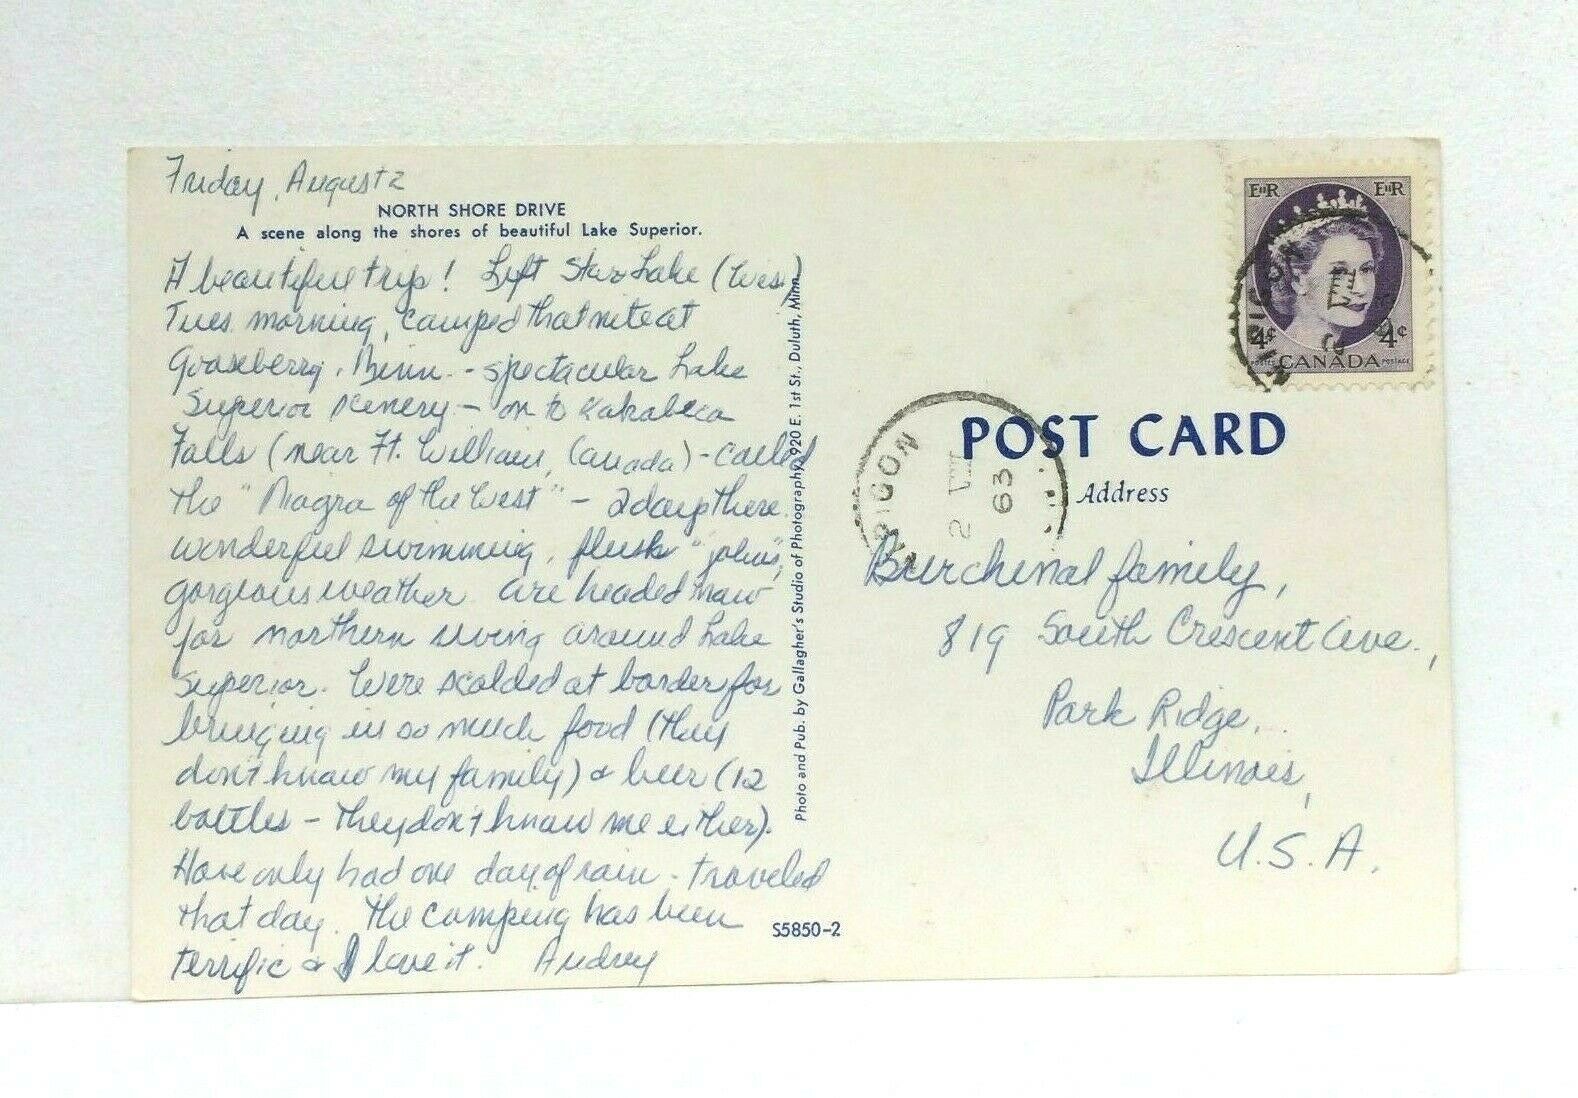 Friday, August 2
NORTH SHORE DRIVE
A scene along the shores of beautiful Lake Superior.
A beautiful trip! Left Star Lake (Wis)
Tues morning, camped that nite at
Gooseberry, Minn. - spectacular Lake
Superior scenery - on to Kakabeca
Falls (near Ft. William, Canada) - called
the "Niagra of the West" - 2 days there.
wonderful swimming, flush "johns",
gorgeous weather. are headed now
for northern swing around Lake
Superior. Were scolded at border for
bringing in so much food (they
don't know my family) & beer (12
bottles - they don't know me either).
Have only had one day of rain - traveled
that day. The camping has been
terrific & I love it. Audrey
Photo and Pub. by Gallagher's Studio of Photography, 920 E. 1st St., Duluth, Minn.
S5850-2
EIIR EIIR
4¢ 4¢
POSTES CANADA POSTAGE
NIPIGON
2 VIII
63
POST CARD
Address
Burchinal family,
819 South Crescent Ave.,
Park Ridge,
Illinois,
U.S.A.